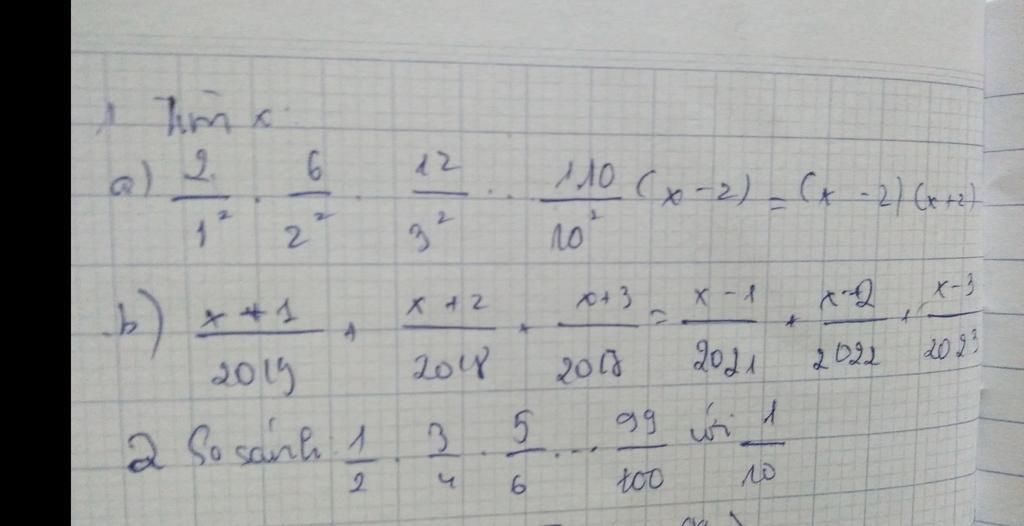 1 Tìm x:
a) 2/1² . 6/2² . 12/3² . . 110/10² (x - 2) = (x - 2) (x+2)
b) x + 1/2019 + x + 2/2018 + x+3/2018 = x - 1/2021 + x - 2/2022 + x - 3/2023
2 So sánh 1/2 . 3/4 . 5/6 . ... 99/100 với 1/10